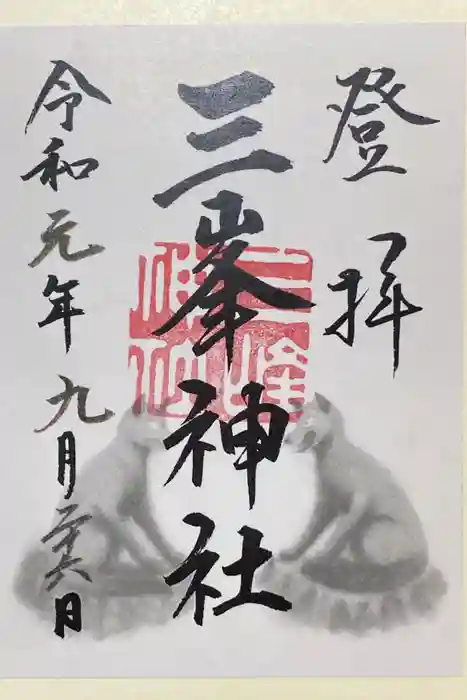 登拝
三峯神社
三峰
神社
令和元年九月二十六日